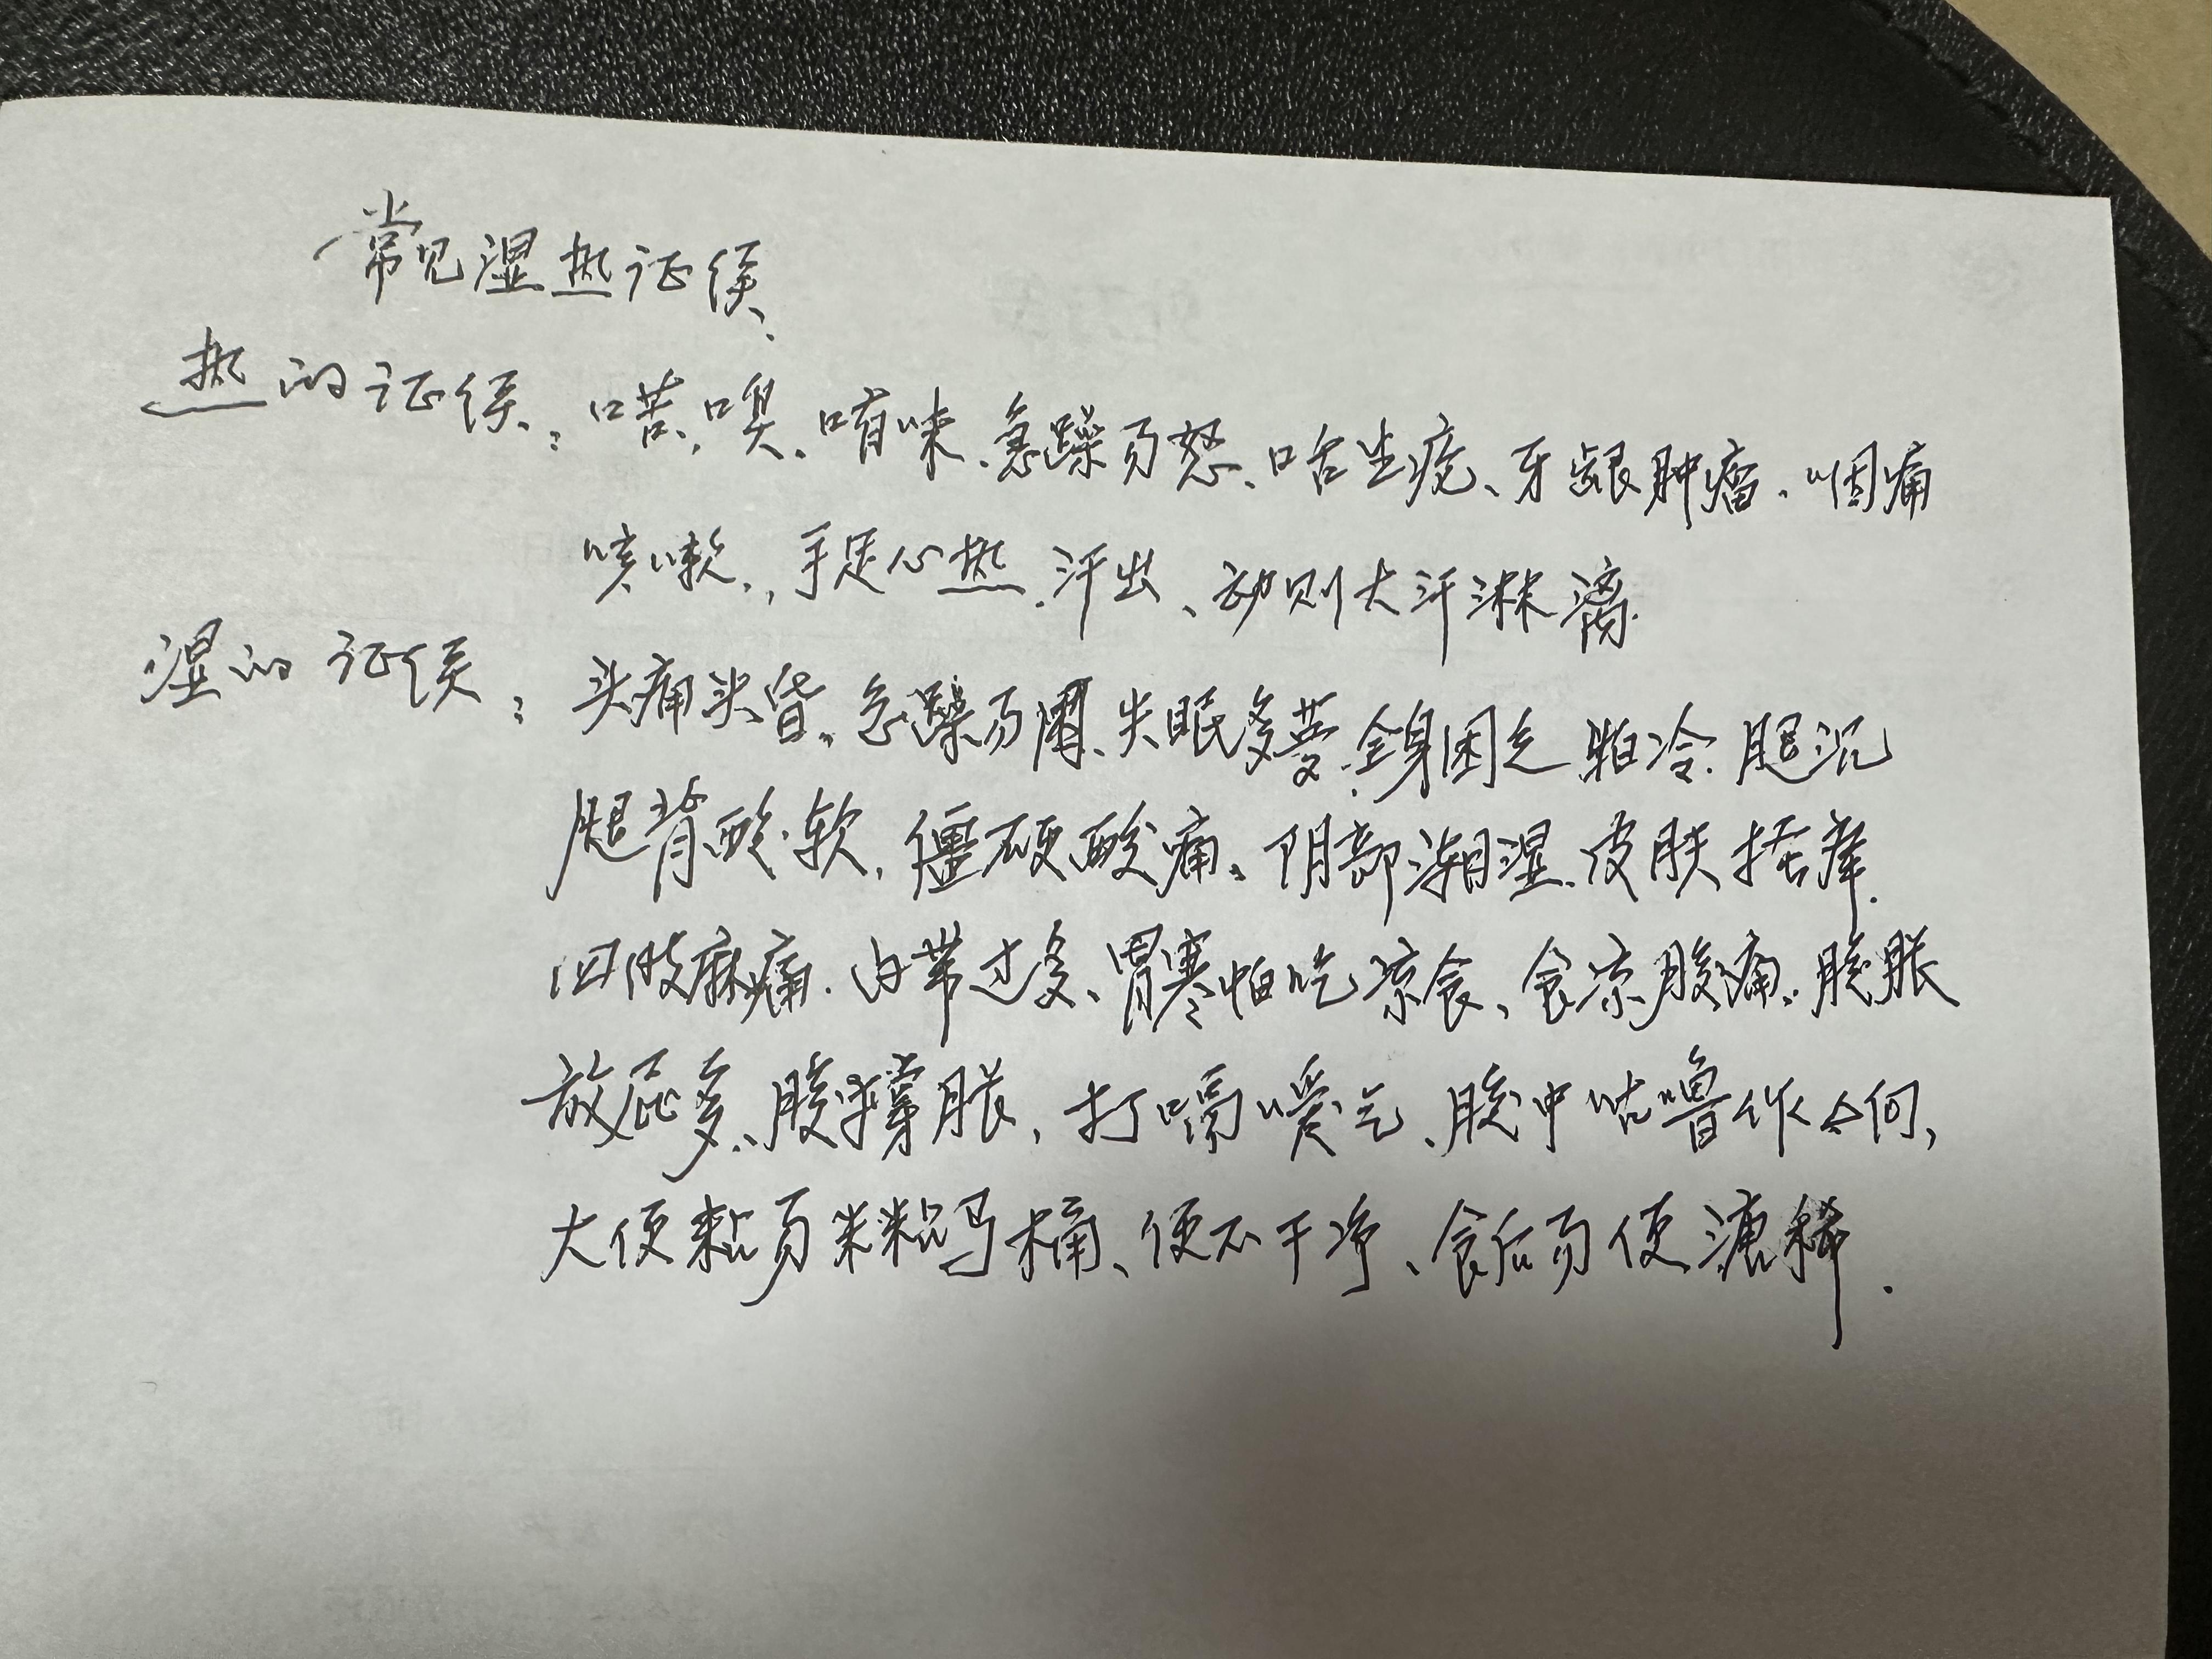 常见湿热证侯、
热的证侯：口苦、口臭、口有味、急躁易怒、口舌生疮、牙龈肿瘤、咽痛
咳嗽、手足心热、汗出、动则大汗淋漓.
湿的证侯：头痛头昏、急躁易怒、失眠多梦、全身困乏 怕冷、腿沉
腿背酸软，僵硬酸痛、阴部潮湿、皮肤搔痒.
四肢麻痛. 白带过多、胃寒怕吃凉食、食凉腹痛、腹胀
放屁多、腹撑胀，打嗝嗳气、腹中咕噜作响，
大便黏易粘马桶、便不干净、食后易便溏稀.